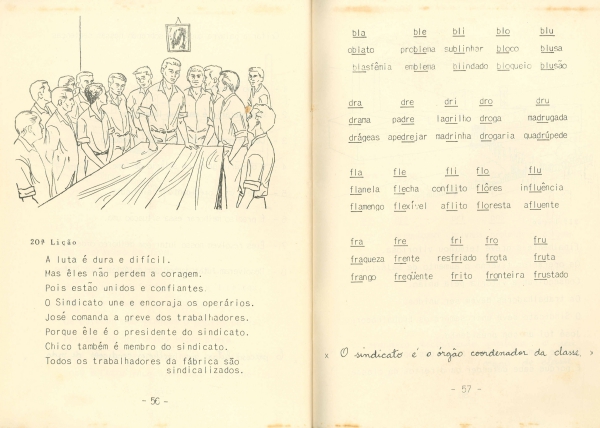 20ª Lição
A luta é dura e difícil.
Mas êles não perdem a coragem.
Pois estão unidos e confiantes.
O Sindicato une e encoraja os operários.
José comanda a greve dos trabalhadores.
Porque êle é o presidente do sindicato.
Chico também é membro do sindicato.
Todos os trabalhadores da fábrica são
sindicalizados.
- 56 -
bla ble bli blo blu
oblato problema sublinhar bloco blusa
blasfênia emblema blindado bloqueio blusão
dra dre dri dro dru
drama padre lagrilho droga madrugada
drágeas apedrejar madrinha drogaria quadrúpede
fla fle fli flo flu
flanela flecha conflito flôres influência
flamengo flexível aflito floresta afluente
fra fre fri fro fru
fraqueza frente resfriado frota fruta
frango freqüente frito fronteira frustado
x O sindicato é o órgão coordenador da classe.
- 57 -